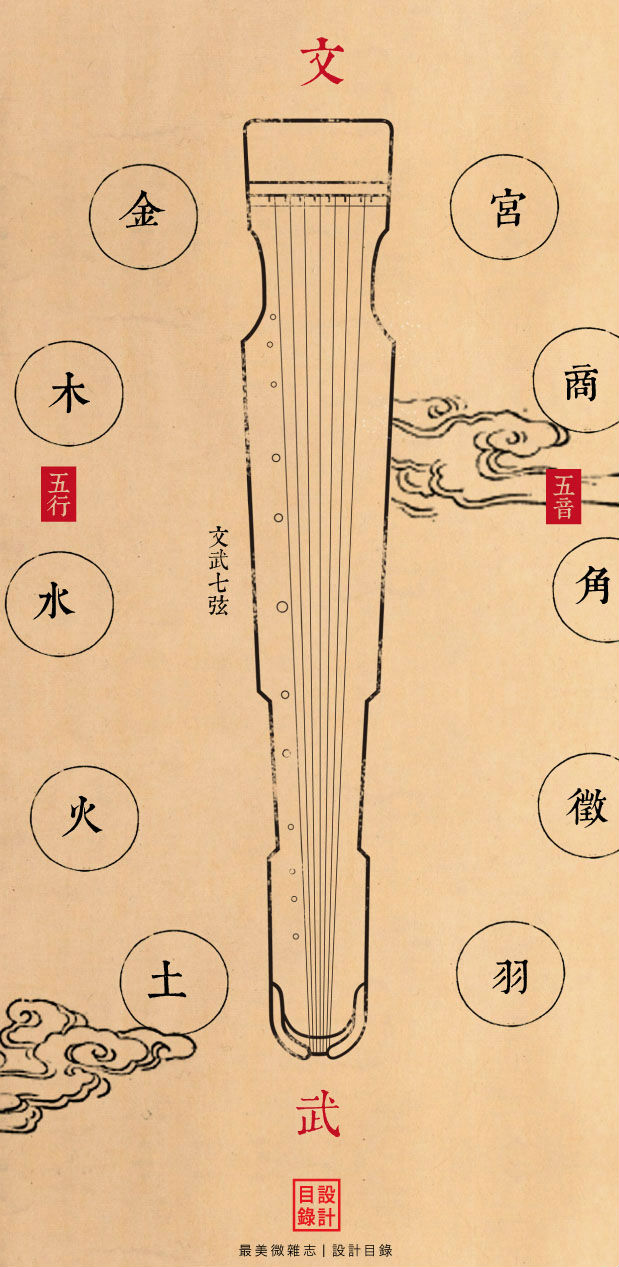 文
金
木
五行
水
火
土
文武七弦
宮
商
五音
角
徵
羽
武
設計
目錄
最美微雜志 | 設計目錄